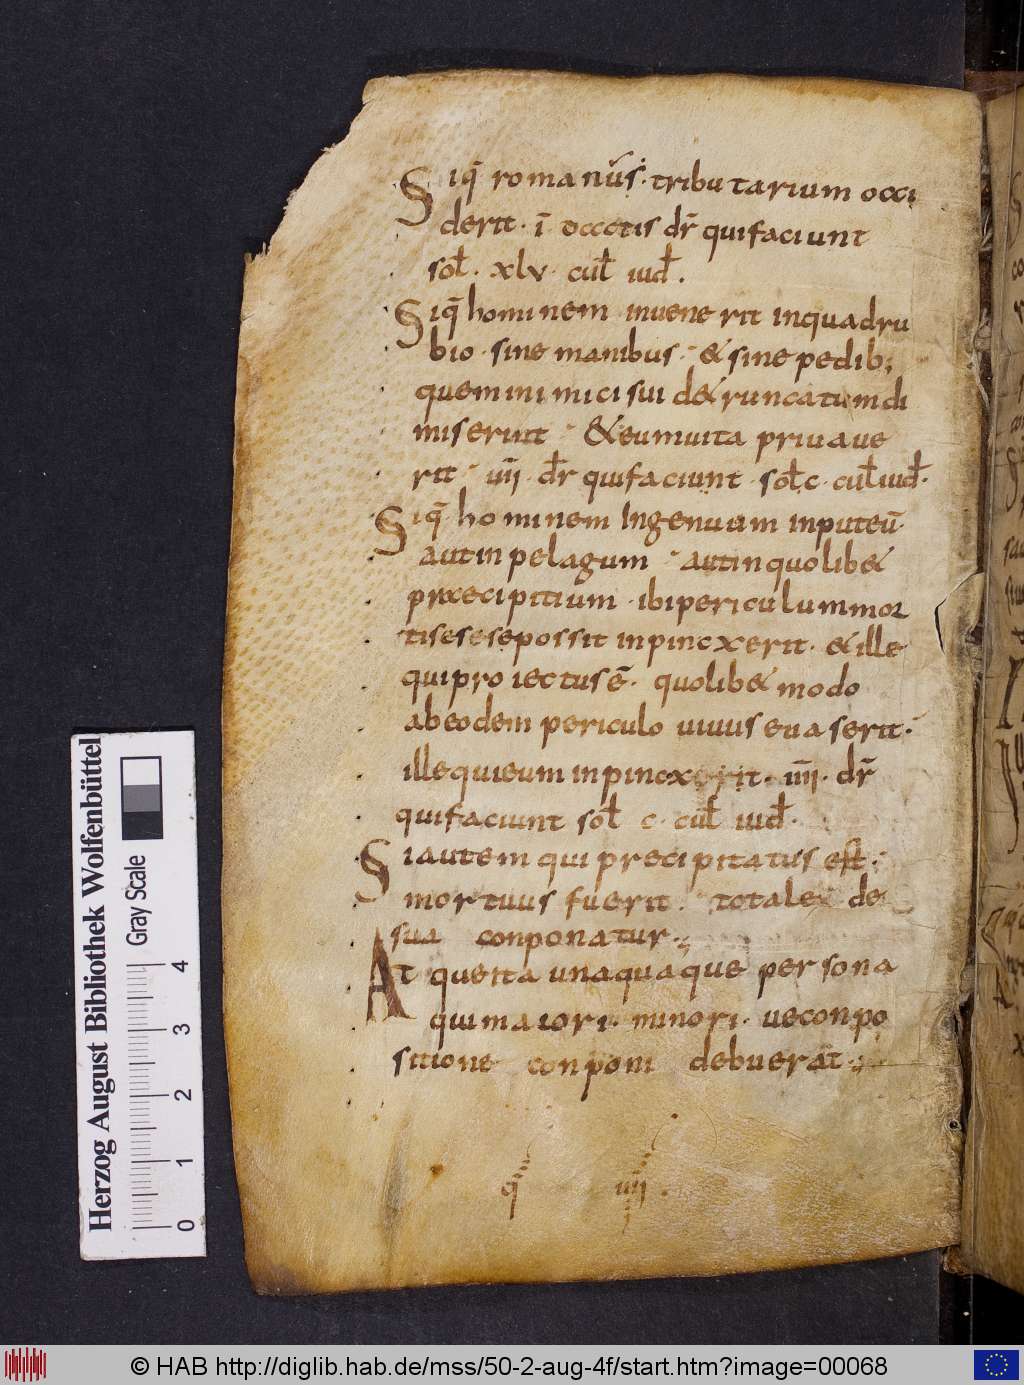 Siq̅ romanus̄ · tributarium occi
derit · i̅ occetis dr̅ quifaciunt
sol̅ · xlv · cul̅ iud̅ ·
Siq̅ hominem inuenerit inquadru
bio · sine manibus · & sine pedib;
quem inimici sui d&runcatum di
miserunt · & eum uita priuaue
rit · iiii · dr̅ quifaciunt · sol̅ c · cul̅ iud̅ ·
Siq̅ · hominem Ingenuum inputeu̅ ·
autinpelagum · autinquolib&
præcipitium · ibipericulum mor
tis esesepossit inpincxerit · & ille
quiproiectus e̅ · quolib& modo
abeodem periculo uiuus euaserit ·
illequieum inpincxerit · iiii · dr̅
quifaciunt sol̅ c · cul̅ iud̅ ·
Siautem qui precipitatus est ·
mortuus fuerit · totale de
sua conponatur ·
At quenta unaquaque persona
quimaiori · minori · ueconpo
sitione conponi debuerat ·
q iiii ·
Herzog August Bibliothek Wolfenbüttel
Gray Scale
0 1 2 3 4
© HAB http://diglib.hab.de/mss/50-2-aug-4f/start.htm?image=00068